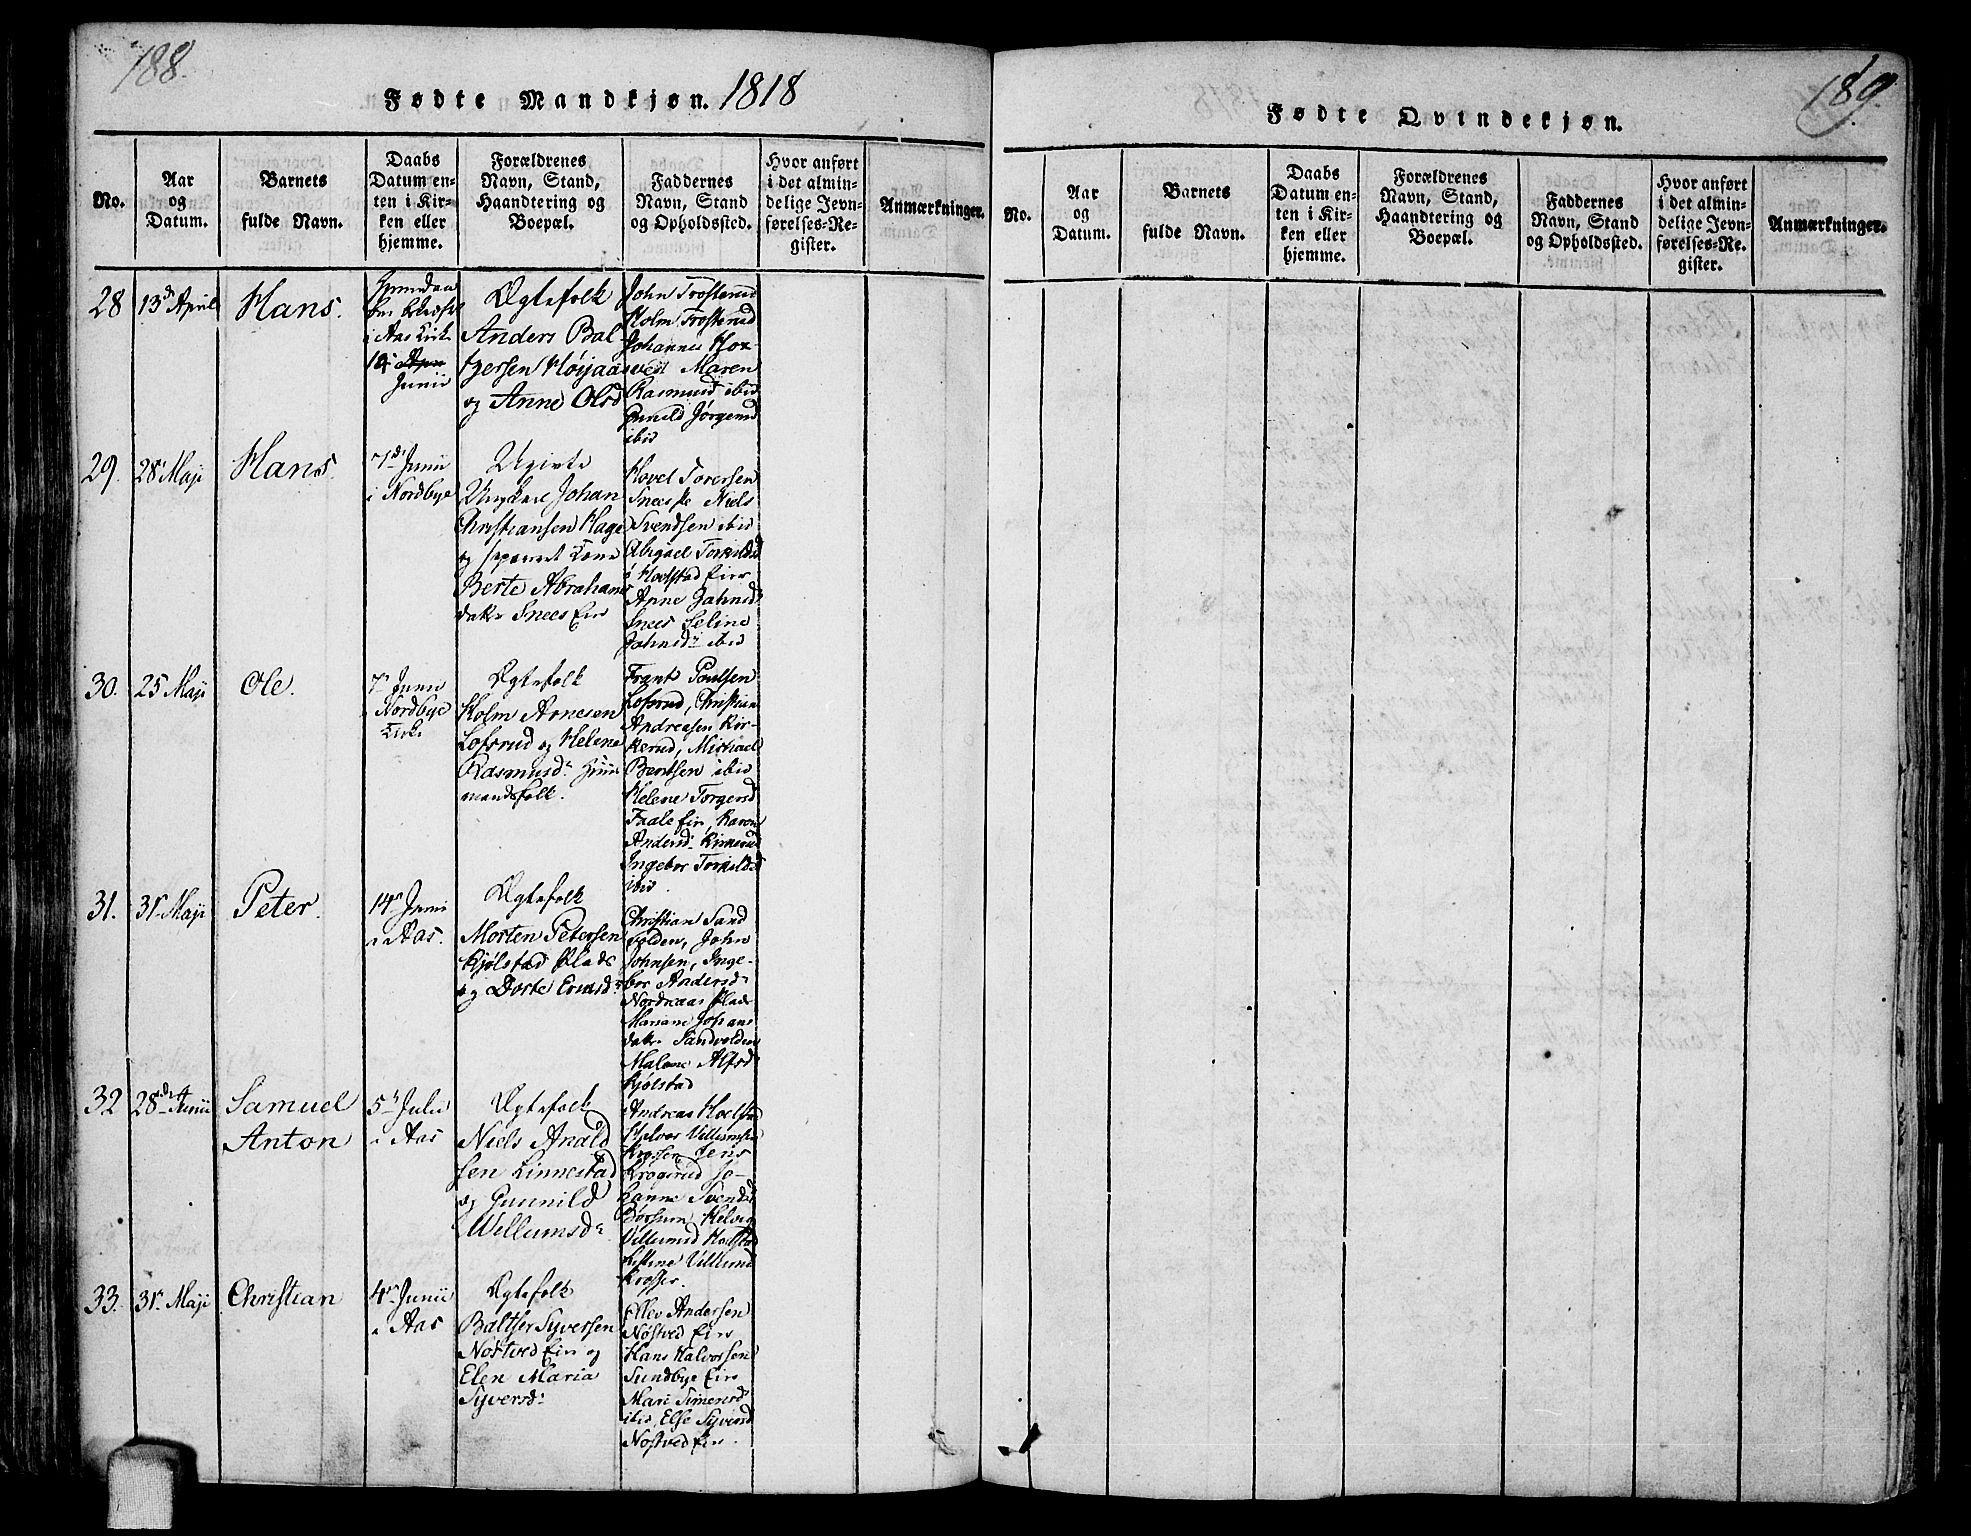 188.
Fødte Mandkjøn. 1818
No.
Aar
og
Datum.
Barnets
fulde Navn.
Daabs
Datum en-
ten i Kir-
ken eller
hjemme.
Forældrenes
Navn, Stand,
Haandtering og
Boepæl.
Faddernes
Navn, Stand
og Opholdssted.
Hvor anført
i det almin-
delige Jevn-
førelses-Re-
gister.
Anmærkninger.
28
13 April
Hans.
i Aas Kirke
Junii
Ægtefolk
Anders Bal
tzersen Høijaas
og Anne Olsd
John Trosterud
Holm Trosterud
Johannes Hor-
vei Maren
Rasmusd ibid
Gunild Jørgensd
ibid
29.
28 Maji
Hans.
7de Junii
i Nordbye
Ugivte
Ungkarl Johan
Christiansen Hage
og separert Kone
Berte Abrahams
datr Snees Eie
Hovel Torersen
Sneeske Niels
Svendsen ibid
Abigael Torkildsd
Hoelstad Eier
Anne Jahnsd
Snees Seline
Jahnsd ibid
30.
25 Maji
Ole.
7 Junii
Nordbye
Kirke
Ægtefolk
Holm Arnesen
Lofsrud og Helene
Rasmusd. Huus
mandsfolk.
Frants Poulsen
Lofsrud, Christian
Andreesen Kir-
kerud, Michael
Bentsen ibid
Helene Torgersd
Faale Eie, Karen
Andersd. Kirkerud
Ingebor Torkildsd
ibid
31.
31 Maji
Peter.
14 Junii
i Aas.
Ægtefolk
Morten Petersen
Kjølstad Plads
og Dorte Ersd
Christian Sand
volden, John
Johnsen, Inge-
bor Andersd
Nordraas Plads
Mariane Johans
datr Sandvolden
Malene Alfsd
Kjølstad
32
28de Junii
Samuel
Anton
5 Julii
i Aas
Ægtefolk
Niels Anald
sen Linnestad
og Gunnild
Willumsd
Andreas Hoelstad
Helvor Villumsen
Krosser Jens
Krogsrud Jo-
hanne Svendsd
Børsum Helvig
Villumsd Hoelstad
Kistine Villumsd
Krosser.
33.
31 Maji
Christian
4 Junii
i Aas
Ægtefolk
Baltser Syversen
Nøstved Eie og
Elen Maria
Syversd.
Ellev Andersen
Nøstved Eie
Hans Halvorsen
Sundbye Eie
Mari Simensd
ibid, Else Syversd
Nøstved Eie.
189.
Fødte Qvindekjøn.
No.
Aar
og
Datum.
Barnets
fulde Navn.
Daabs
Datum en-
ten i Kir-
ken eller
hjemme.
Forældrenes
Navn, Stand,
Haandtering og
Boepæl.
Faddernes
Navn, Stand
og Opholdssted.
Hvor anført
i det almin-
delige Jevn-
førelses-Re-
gister.
Anmærkninger.